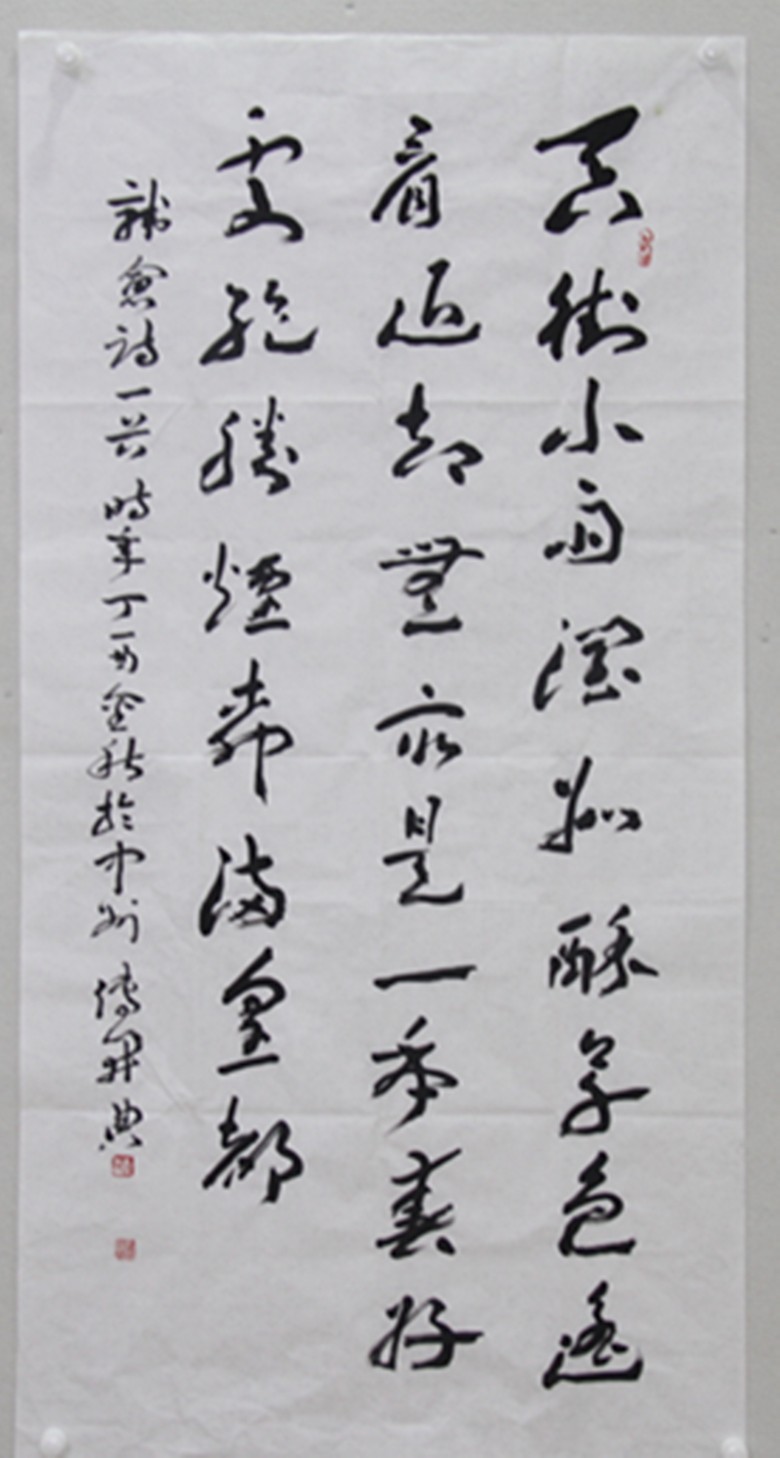 天街小雨潤如酥草色遙
看近却無最是一年春好
處絕勝煙柳滿皇都
韓愈詩一首 時年丁酉金秋於中州 傅開典